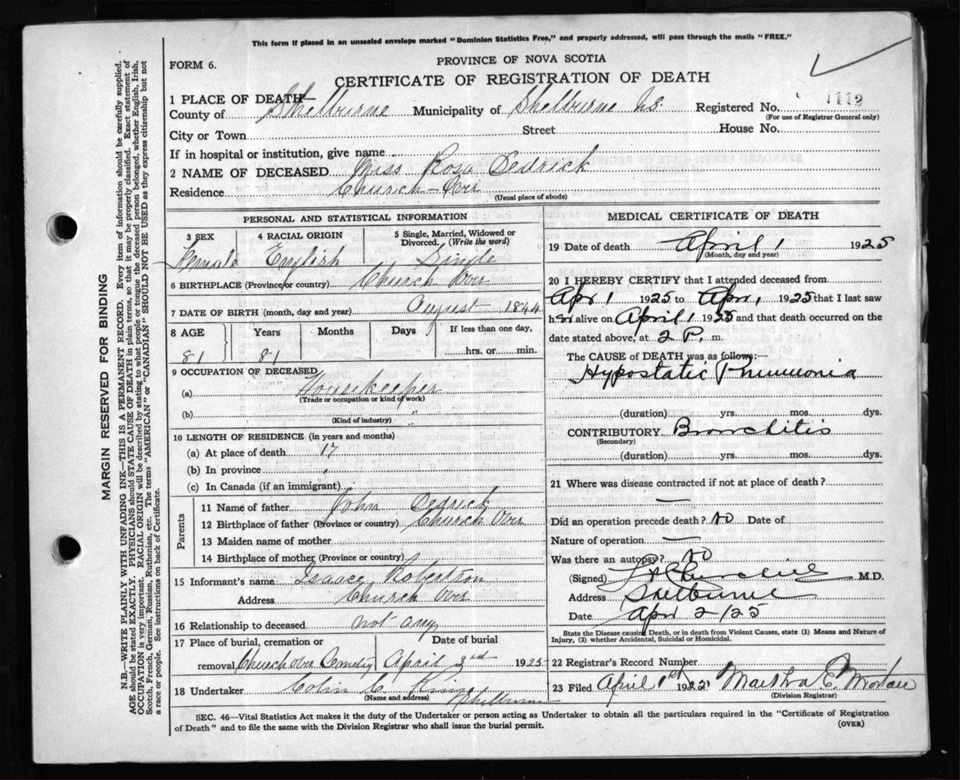 This form if placed in an unsealed envelope marked "Dominion Statistics Free," and properly addressed, will pass through the mails "FREE."
FORM 6.
PROVINCE OF NOVA SCOTIA
CERTIFICATE OF REGISTRATION OF DEATH
1 PLACE OF DEATH
County of Shelburne Municipality of Shelburne N.S. Registered No. 1112
(For use of Registrar General only)
City or Town Street House No.
If in hospital or institution, give name
2 NAME OF DECEASED Miss Rosa Pedrick
Residence Church Over
(Usual place of abode)
PERSONAL AND STATISTICAL INFORMATION
3 SEX 4 RACIAL ORIGIN 5 Single, Married, Widowed or Divorced. (Write the word)
Female English Single
6 BIRTHPLACE (Province or country) Church Over
7 DATE OF BIRTH (month, day and year) August 1844
8 AGE Years Months Days If less than one day,
81 81 hrs. or min.
9 OCCUPATION OF DECEASED
(a) Housekeeper
(Trade or occupation or kind of work)
(b) "
(Kind of industry)
10 LENGTH OF RESIDENCE (in years and months)
(a) At place of death 17
(b) In province
(c) In Canada (if an immigrant)
Parents
11 Name of father John Pedrick
12 Birthplace of father (Province or country) Church Over
13 Maiden name of mother
14 Birthplace of mother (Province or country)
15 Informant's name Isaac Robertson
Address Church Over
16 Relationship to deceased not any
17 Place of burial, cremation or removal Date of burial
Church over Cemetery April 3rd 1925
18 Undertaker Colin C King
(Name and address) Shelburne
MEDICAL CERTIFICATE OF DEATH
19 Date of death April 1 1925
(Month, day and year)
20 I HEREBY CERTIFY that I attended deceased from
Apr 1 1925 to Apr 1 1925 that I last saw
her alive on April 1 1925 and that death occurred on the
date stated above, at 2 P. m.
The CAUSE of DEATH was as follows:—
Hypostatic Pneumonia
(duration) yrs. mos. dys.
CONTRIBUTORY Bronchitis
(Secondary)
(duration) yrs. mos. dys.
21 Where was disease contracted if not at place of death?
—
Did an operation precede death? No Date of
Nature of operation —
Was there an autopsy? No
(Signed) Churchill M.D.
Address Shelburne
Date Apr 2/25
State the Disease causing Death, or in death from Violent Causes, state (1) Means and Nature of Injury, (2) whether Accidental, Suicidal or Homicidal.
22 Registrar's Record Number
23 Filed April 1922 Martha E.
(Division Registrar)
SEC. 46—Vital Statistics Act makes it the duty of the Undertaker or person acting as Undertaker to obtain all the particulars required in the "Certificate of Registration
of Death" and to file the same with the Division Registrar who shall issue the burial permit.
(OVER)
MARGIN RESERVED FOR BINDING
N.B.—WRITE PLAINLY WITH UNFADING INK—THIS IS A PERMANENT RECORD. Every item of information should be carefully supplied.
AGE should be stated EXACTLY. PHYSICIANS should STATE CAUSE OF DEATH in plain terms, so that it may be properly classified. Exact statement of
OCCUPATION is very important. RACIAL ORIGIN will be described by stating to what people or tongue the deceased person belonged, whether English, Irish,
Scotch, French, German, Russian, Ruthenian, etc. The terms "AMERICAN" or "CANADIAN" SHOULD NOT BE USED as they express citizenship but not
a race or people. See instructions on back of Certificate.